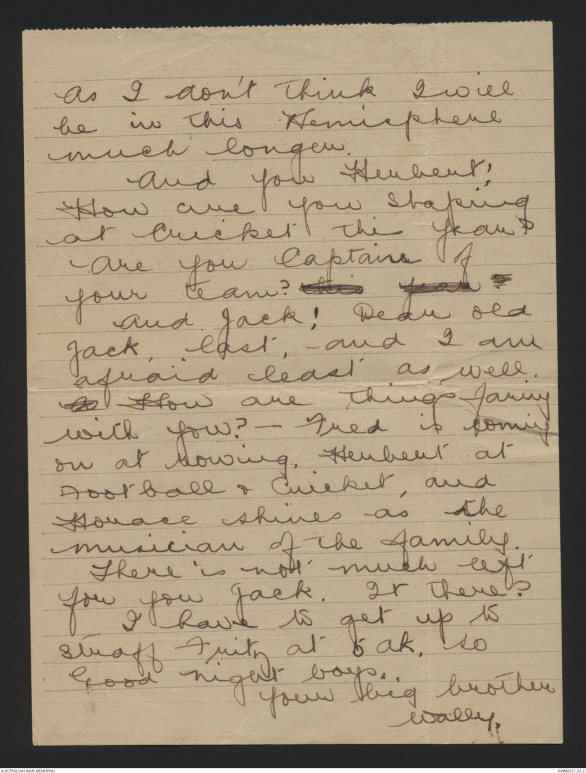 as I don't think I will
be in this Hemisphere
much longer.
And you Herbert!
How are you shaping
at Cricket this year?
Are you Captain of
your team? this year?
And Jack! Dear old
Jack, last, and I am
afraid least as well.
How are things faring
with you? — Fred is coming
on at rowing, Herbert at
Football & Cricket, and
Horace shines as the
musician of the family.
There is not much left
for you Jack. Is there?
I have to get up to
straff Fritz at 5 ak. so
Good night boys.
Your big brother
Wally.
AUSTRALIAN WAR MEMORIAL